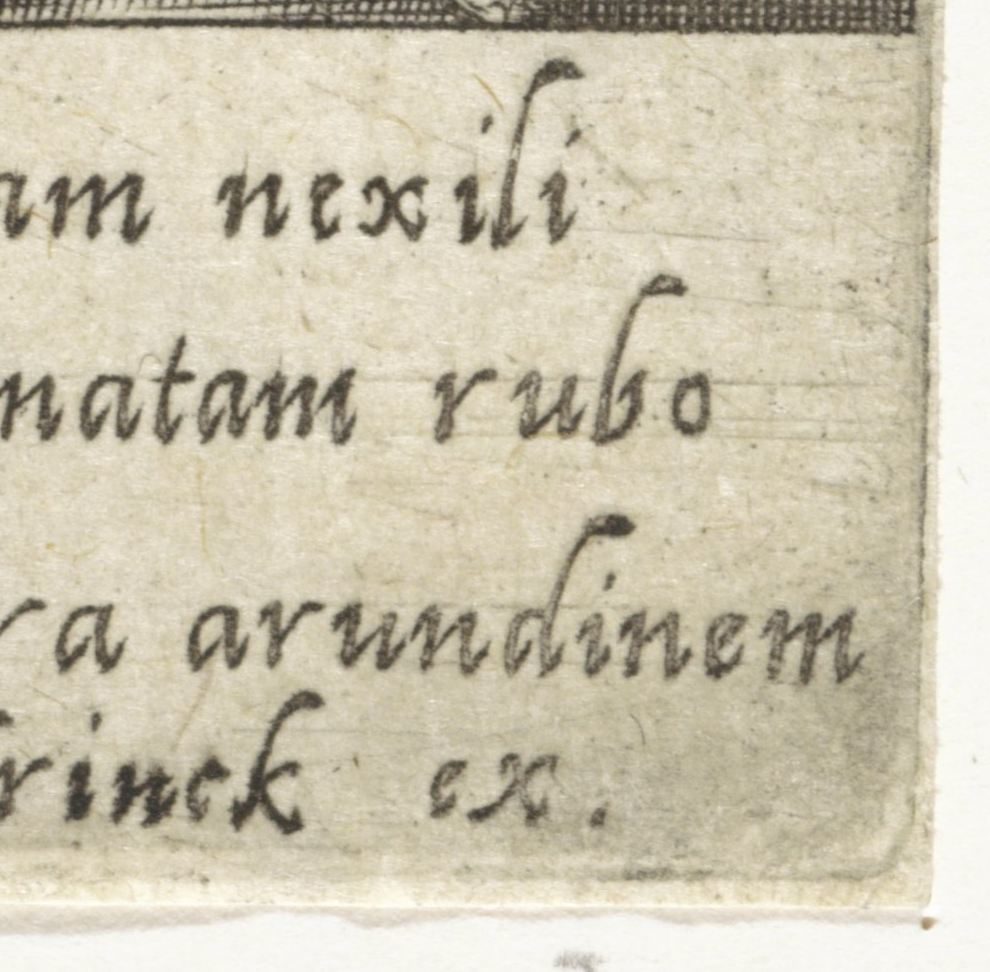 am nexili
natam rubo
ra arundinem
rinck ex.